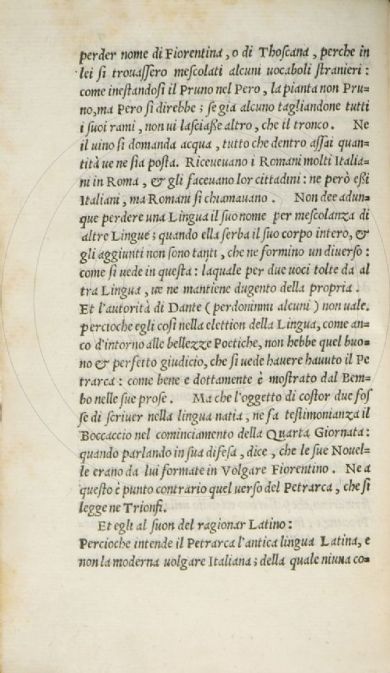 perder nome di Fiorentina, o di Thoscana, perche in
lei si trouassero mescolati alcuni uocaboli stranieri:
come inestandosi il Pruno nel Pero, la pianta non Pru-
no, ma Pero si direbbe; se gia alcuno tagliandone tutti
i suoi rami, non ui lasciasse altro, che il tronco. Ne
il uino si domanda acqua, tutto che dentro assai quan-
tità ue ne sia posta. Riceueuano i Romani molti Italia-
ni in Roma, & gli faceuano lor cittadini: ne però essi
Italiani, ma Romani si chiamauano. Non dee adun-
que perdere una Lingua il suo nome per mescolanza di
altre Lingue; quando ella serba il suo corpo intero, &
gli aggiunti non sono tanti, che ne formino un diuerso:
come si uede in questa: laquale per due uoci tolte da al
tra Lingua, ue ne mantiene dugento della propria.
Et l'autorità di Dante (perdoninmi alcuni) non uale.
percioche egli cosi nella elettion della Lingua, come an-
co d'intorno alle bellezze Poetiche, non hebbe quel buo-
no & perfetto giudicio, che si uede hauere hauuto il Pe
trarca: come bene e dottamente è mostrato dal Bem-
bo nelle sue prose. Ma che l'oggetto di costor due fos
se di scriuer nella lingua natia, ne fa testimonianza il
Boccaccio nel cominciamento della Quarta Giornata:
quando parlando in sua difesa, dice, che le sue Nouel-
le erano da lui formate in Volgare Fiorentino. Ne a
questo è punto contrario quel uerso del Petrarca, che si
legge ne Trionfi.
Et egli al suon del ragionar Latino:
Percioche intende il Petrarca l'antica lingua Latina, e
non la moderna uolgare Italiana; della quale niuna co-